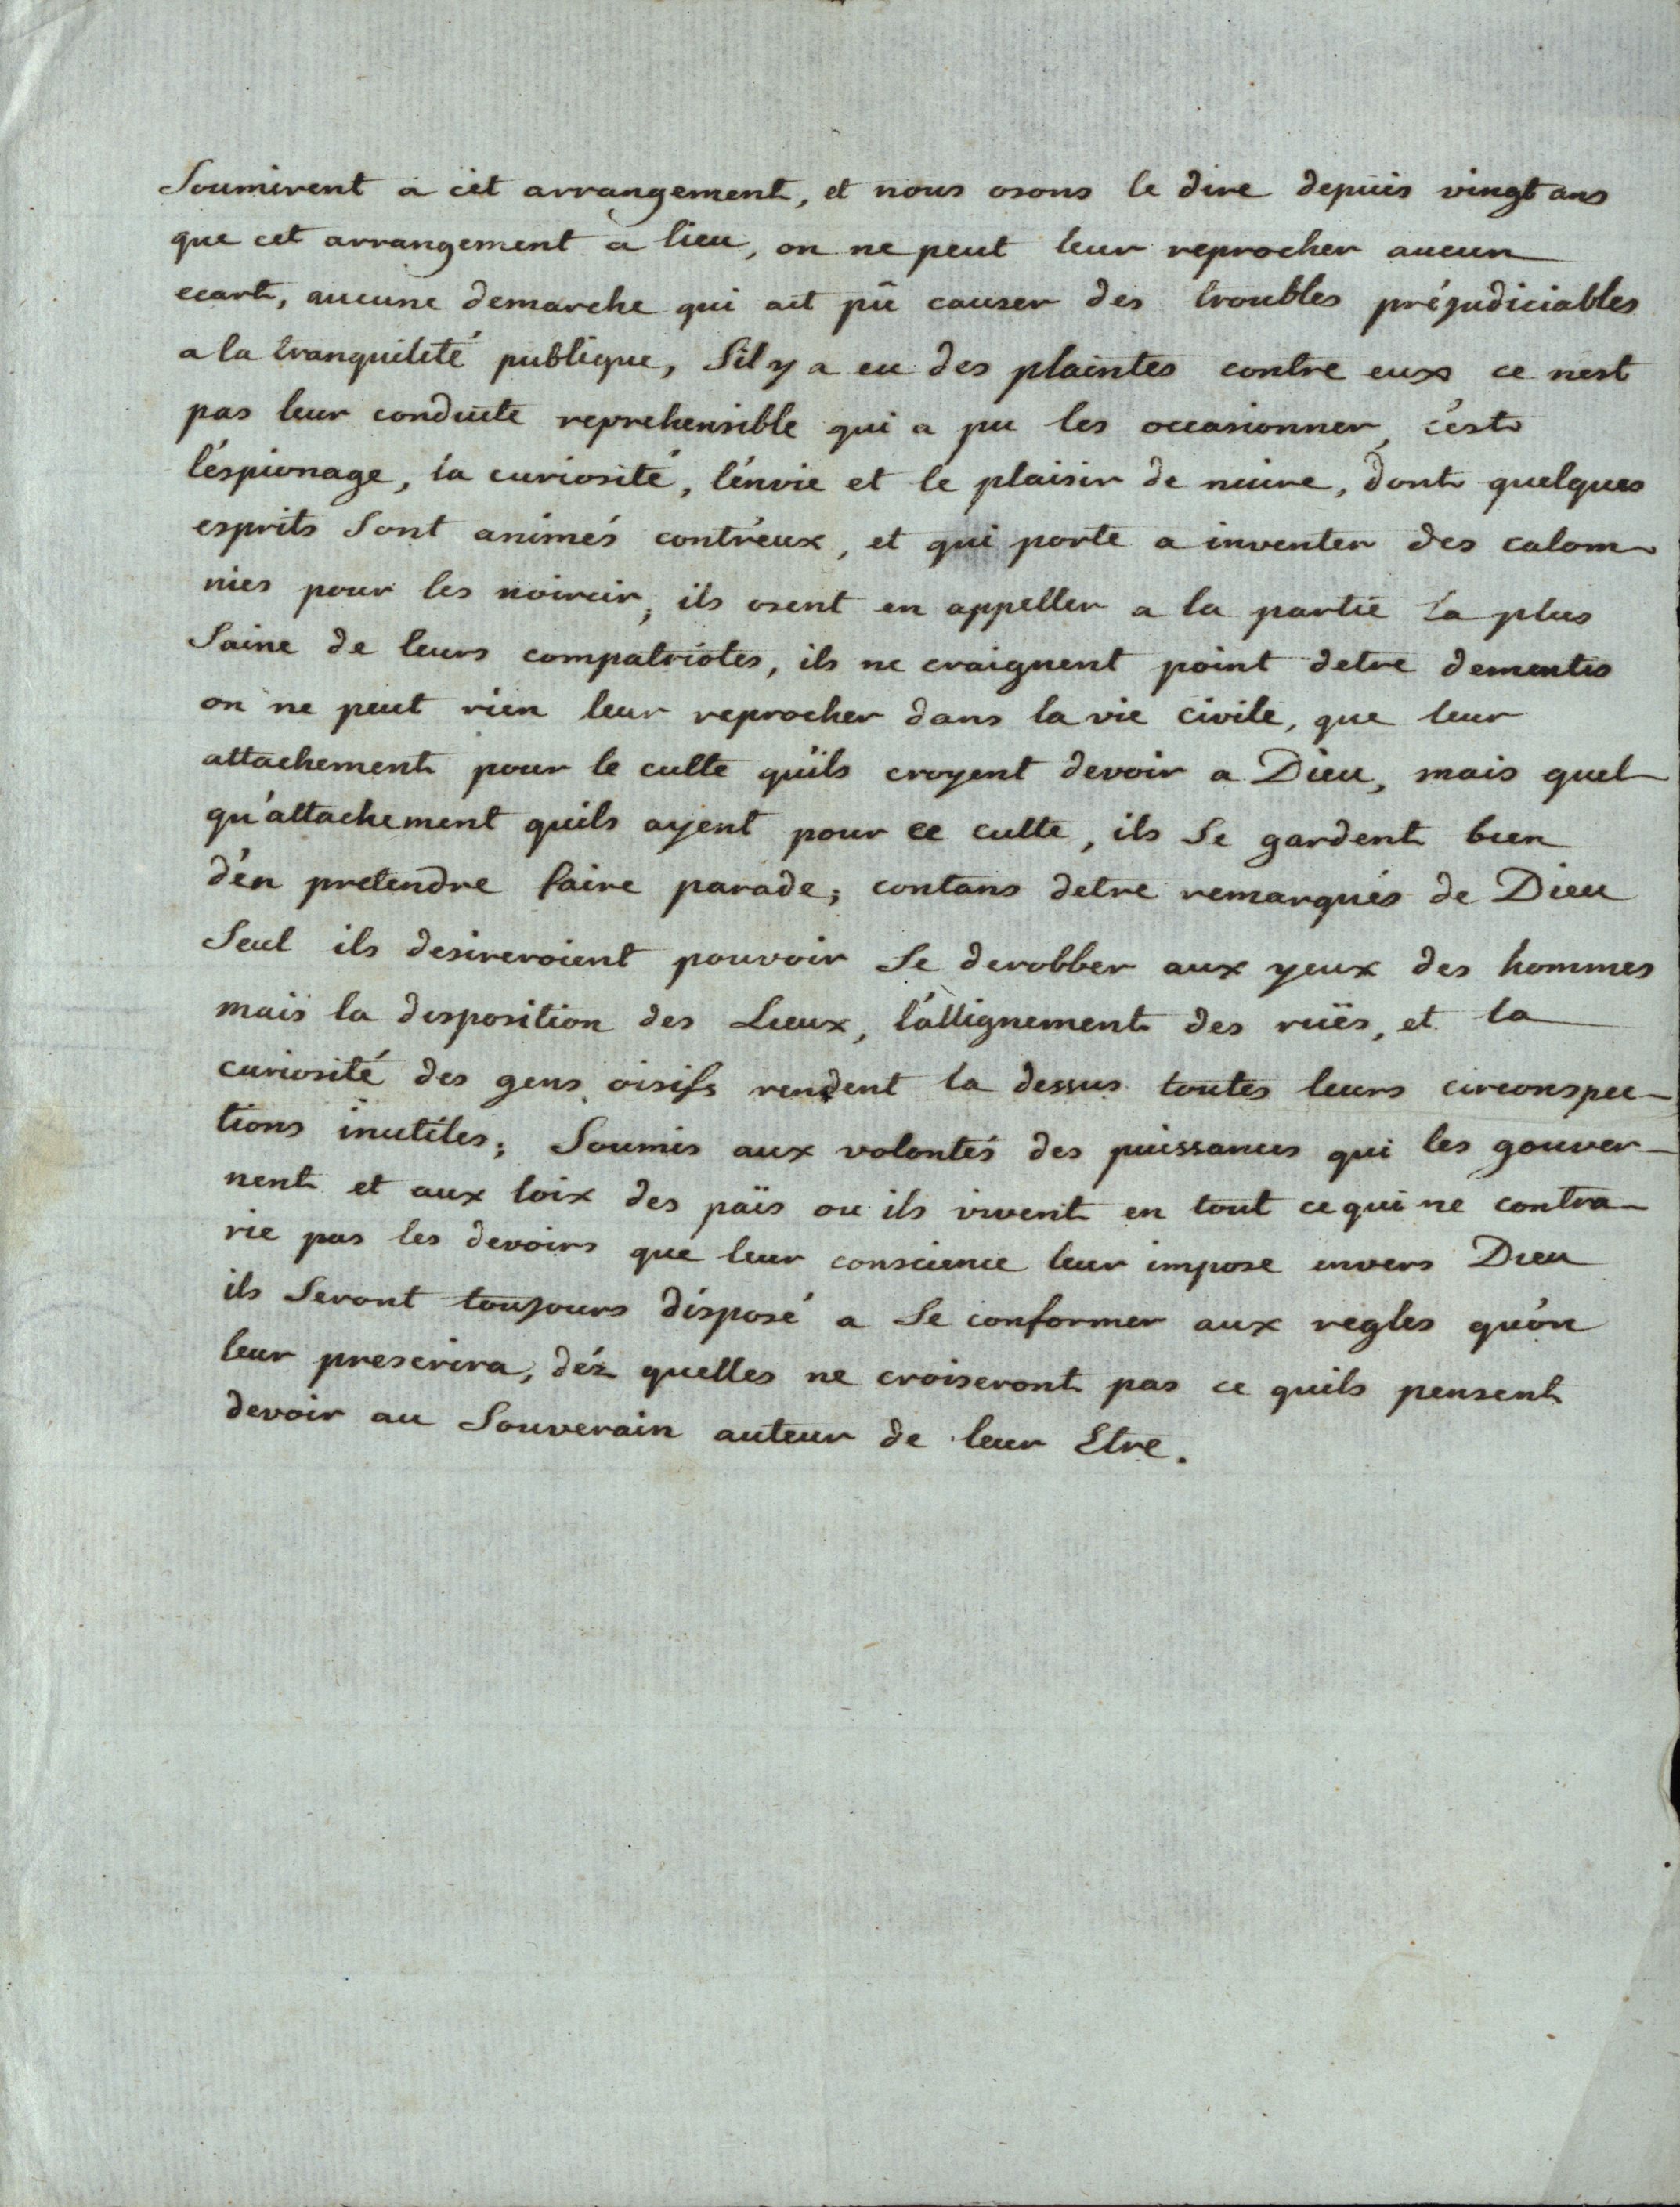 Soumirent à cet arrangement, et nous osons le dire depuis vingt ans
que cet arrangement a lieu, on ne peut leur reprocher aucun
ecart, aucune demarche qui ait pû causer des troubles préjudiciables
a la tranquilité publique, S'il y a eu des plaintes contre eux ce nest
pas leur conduite reprehensible qui a pu les occasionner, c'est
l'éspionage, la curiosité, l'énvie et le plaisir de nuire, dont quelques
esprits Sont animés contr'eux, et qui porte a inventer des calom-
nies pour les noircir; ils osent en appeller a la partie la plus
Saine de leurs compatriotes, ils ne craignent point detre dementis
on ne peut rien leur reprocher dans la vie civile, que leur
attachement pour le culte qu'ils croyent devoir a Dieu, mais quel-
qu'attachement quils ayent pour ce culte, ils Se gardent bien
d'én pretendre faire parade; contans detre remarqués de Dieu
Seul ils desireroient pouvoir Se derobber aux yeux des hommes
mais la disposition des Lieux, l'allignement des ruës, et la
curiosité des gens oisifs rendent la dessus toutes leurs circonspec-
tions inutiles; Soumis aux volontés des puissances qui les gouver-
nent et aux loix des païs ou ils vivent en tout ce qui ne contra-
rie pas les devoirs que leur conscience leur impose envers Dieu
ils Seront toujours disposé a Se conformer aux regles qu'on
leur prescrira, déz quelles ne croiseront pas ce quils pensent
devoir au Souverain auteur de leur Etre.